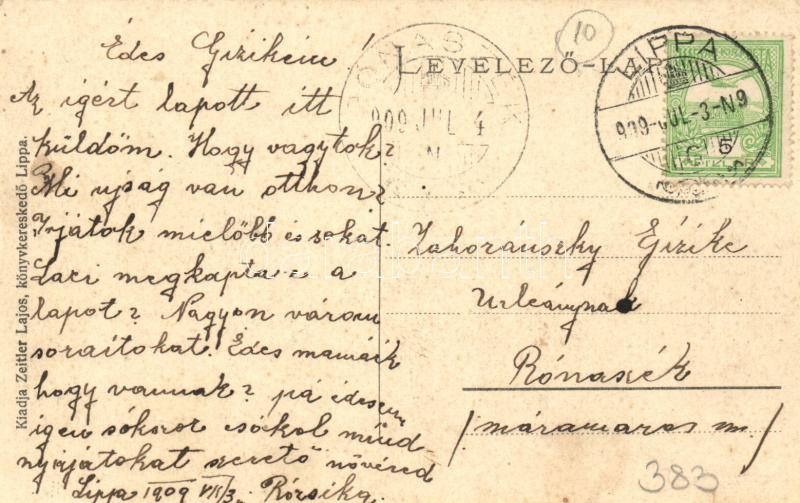 Édes Gizikém!
Az igért lapott itt
küldöm. Hogy vagytok?
Mi ujság van otthon?
Irjátok mielőbb és sokat.
Laci megkapta-e a
lapot? Nagyon várom
soraitokat. Édes mamáik
hogy vannak? pá édesem
igen sokszor csókol mind
nyájatokat szerető nővéred
Lippa 1909 VII/3. Rózsika
LEVELEZŐ-LAP
10
RÓNASZÉK
909 JUL 4
LIPPA
909-JUL-3-N9
5
Zahoránszky Gizike
Urleánynak
Rónaszék
/máramaros m./
383
Kiadja Zeitler Lajos, könyvkereskedő Lippa.